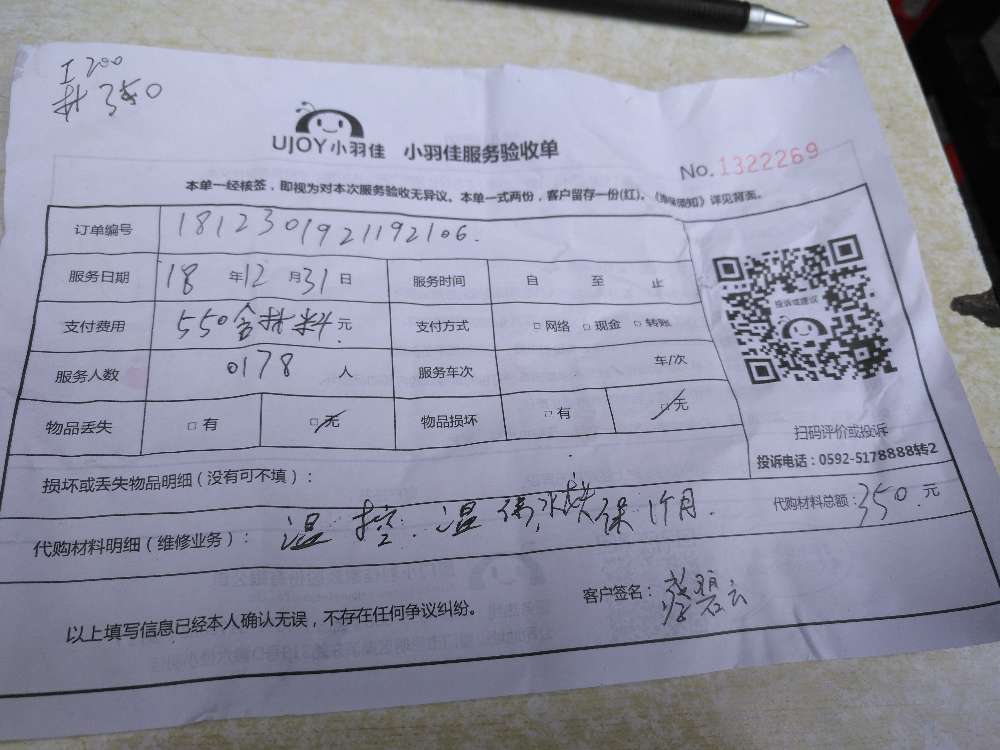 工 200
材 350
UJOY小羽佳 小羽佳服务验收单
No. 1322269
本单一经核签，即视为对本次服务验收无异议。本单一式两份，客户留存一份(红)。《 须知》详见背面。
订单编号 1812301921192106.
服务日期 18 年 12 月 31 日 服务时间 自 至 止
支付费用 550含材料 元 支付方式 □ 网络 □ 现金 □ 转账
服务人数 0178 人 服务车次 车/次
物品丢失 □ 有 □ 无 物品损坏 □ 有 □ 无
投诉或建议
扫码评价或投诉
投诉电话：0592-5178888转2
损坏或丢失物品明细（没有可不填）：
代购材料明细（维修业务）： 温控. 温 保 1个月. 代购材料总额：350. 元
以上填写信息已经本人确认无误，不存在任何争议纠纷。 客户签名： 碧云